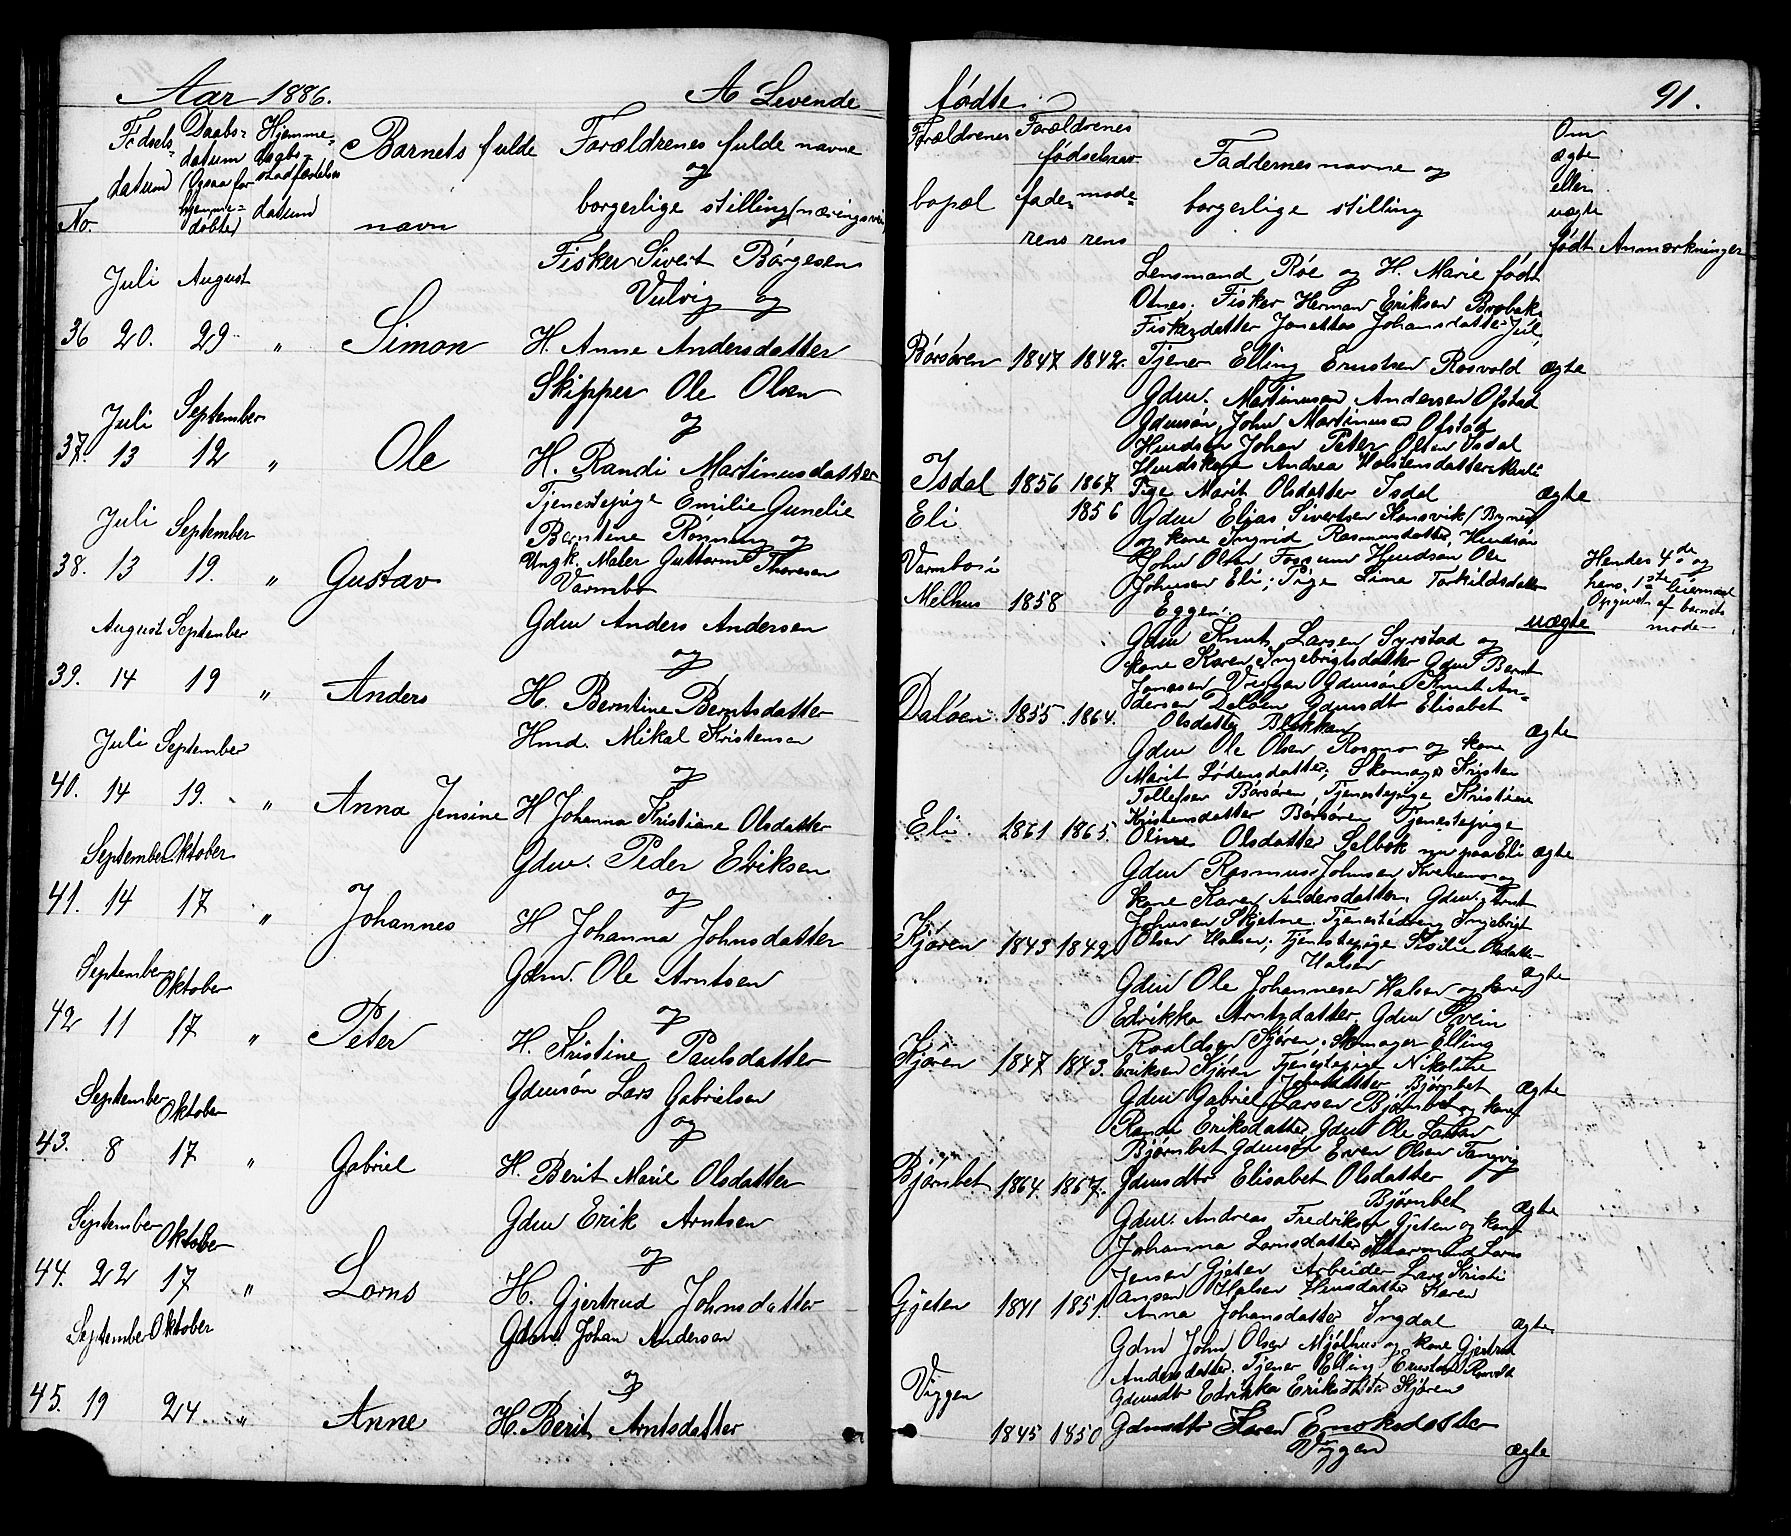 Aar 1886.
A Levende
No.
Fødsels-
datum
Daabs-
datum
(Ogsaa for
hjemme-
døbte)
Hjemme-
daabs-
stadfæstelses
datum
Barnets fulde
navn
Forældrenes fulde navne
og
borgerlige stilling (næringsvei)
36
Juli
20.
August
29
"
Simon
Fisker Sivert Børgesen
Vulvig og
H. Anne Andersdatter
37.
Juli
13
September
12
"
Ole
Skipper Ole Olsen
og
H. Randi Martinusdatter
38.
Juli
13
September
19.
"
Gustav
Tjenestepige Emilie Gunelie
Berntine Rønning og
Ungk. Maler Guttorm Thoresen
Varmbo
39.
August
14
September
19
"
Anders
Gdm Anders Andersen
og
H. Berntine Berntsdatter
40.
Juli
14
September
19.
"
Anna Jensine
Hmd. Mikal Kristensen
og
H Johanna Kristiane Olsdatter
41.
September
14
Oktober
17
"
Johannes
Gdm. Peder Eriksen
og
H Johanna Johnsdatter
42
September
11
Oktober
17
"
Peter
Gdm. Ole Arntsen
og
H. Kristine Paulsdatter
43.
September
8
Oktober
17
"
Gabriel
Gdmsøn Lars Gabrielsen
og
H. Berit Marie Olsdatter
44.
September
22
Oktober
17
"
Lorns
Gdm Erik Arntsen
og
H. Gjertrud Johnsdatter
45.
September
19
Oktober
24
"
Anne
Gdm. Johan Andersen
og
H. Berit Arntsdatter
fødte.
91.
Forældrenes
bopæl
Forældrenes
fødselsaar
fade-
rens
mode-
rens
Faddernes navne og
borgerlige stilling
Om
ægte
eller
uægte
født
Anmærkninger
Børsøren 1847 1842.
Lensmand Røe og H. Marie født
Otnes. Fisker Herman Eriksen Brobak
Fiskerdatter Jonetta Johansdatter Jul,
Tjener Elling Ernstsen Rosvold ægte
Isdal 1856 1867
Gdm. Martinusen Andersen Ofstad
Gdmsøn John Martinusen Ofstad
Hmdsøn Johan Peter Olsen Isdal
Hmdskone Andrea Holstensdatter
Pige Marit Olsdatter Isdal ægte
Eli 1856
Varmbo i
Melhus 1858
Gdm Elias Sivertsen Konsvik (Bynes)
og kone Ingrid Rasmusdatter, Hmdsøn
John Olsen Fossum Hmdsøn Ole
Johnsen Eli; Pige Lina Torkildsdatter
Eggen.
uægte
Hendes 4de og
hans 1ste leiermaal
Opgivet af barnets
mode-
Daløen 1855 1864.
Gdm Knut Larsen Syrstad og
kone Karen Ingebrigtsdatter Gdm Bernt
Jonasen Viggen Gdmsøn Knut An-
dersen Daløen Gdmsdtr Elisabet
Olsdatter Blokkan ægte
Eli. 1861 1865.
Gdm Ole Olsen Rosmo og kone
Marit Lodensdatter, Skomager Kristen
Tollefsen Børsøren, Tjenestepige Kristine
Kristensdatter Børsøren Tjenestepige
Oline Olsdatter Selbek nu paa Eli ægte
Kjøren 1843 1842
Gdm Rasmus Johnsen Kvernmo og
kone Karen Andersdatter. Gdm. Arnt
Johnsen Skjetne. Tjenestedreng Ingebrigt
Olsen Halsen, Tjenestepige Olsdatter
Halsen ægte
Kjøren 1847 1843.
Gdm Ole Johannesen Halsen og kone
Edrikka Arntsdatter. Gdm Svein
Roaldsen Kjøren. Skomager Elling
Eriksen Kjøren Tjenestepige Nikoline
Johnsdatter Bjørnbet ægte
Bjørnbet 1864. 1867.
Gdm Gabriel Larsen Bjørnbet og kone
Randi Eriksdatter Gdm Ole Larsen
Bjørnbet Gdmsøn Even Olsen Tangvig
Gdmsdtr Elisabet Olsdatter
Bjørnbet ægte
Gjeten 1841 1851
Gdm. Andreas Fredriksen Gjeten og kone
Johanna Lornsdatter Lorns
Jensen Gjeten Arbeider Lars Kristi
ansen Halsen Hmdsdatter Karen
Anna Johansdatter Ingdal ægte
Viggen
1845 1850
Gdm John Olsen Mjølhus og kone Gjertrud
Andersdatter, Tjener Elling Ernstsen Rosvold
Gdmsdtr Edrikka Eriksdatter Kjøren
Gdmsdtr Karen Enoksdatter
Viggen ægte